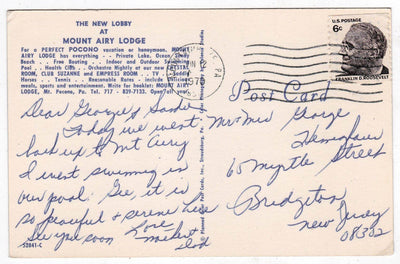 THE NEW LOBBY
AT
MOUNT AIRY LODGE
For a PERFECT POCONO vacation or honeymoon, MOUNT
AIRY LODGE has everything. Private Lake, Ocean Sandy
Beach - Free Boating - Indoor and Outdoor Swimming
Pool - Health Clubs - Orchestra Nightly at our new CRYSTAL
ROOM, CLUB SUZANNE and EMPRESS ROOM - TV - Saddle
Horses - Tennis - Reasonable Rates include meals,
movies, sports and entertainment. Write for booklet: MOUNT AIRY
LODGE, Mt. Pocono, Pa. Tel. 717 - 839-7133.
Dear George & Sandie
Today we went
back up to Mt Airy
I went swimming in
our pool. Gee, it is
so peaceful & serene here
See you soon Love
52041-C
PA
U.S. POSTAGE
6¢
FRANKLIN D. ROOSEVELT
Post Card
Mr & Mrs George
65 Myrtle Street
Bridgeton
New Jersey
08302